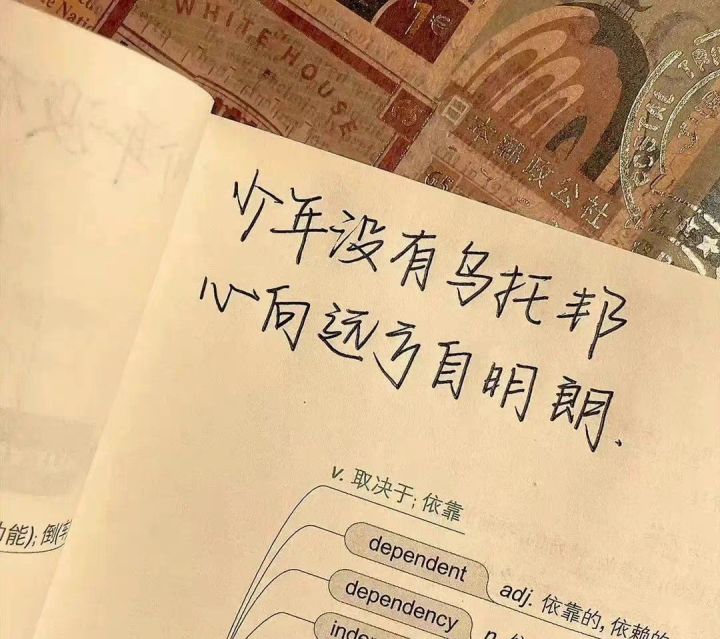 WHITE HOUSE
1e
日本郵政公社
POSTAL
少年没有乌托邦
心向远方自明朗.
v. 取决于; 依靠
能); 倒(转
dependent
adj. 依靠的, 依赖的
dependency
n.